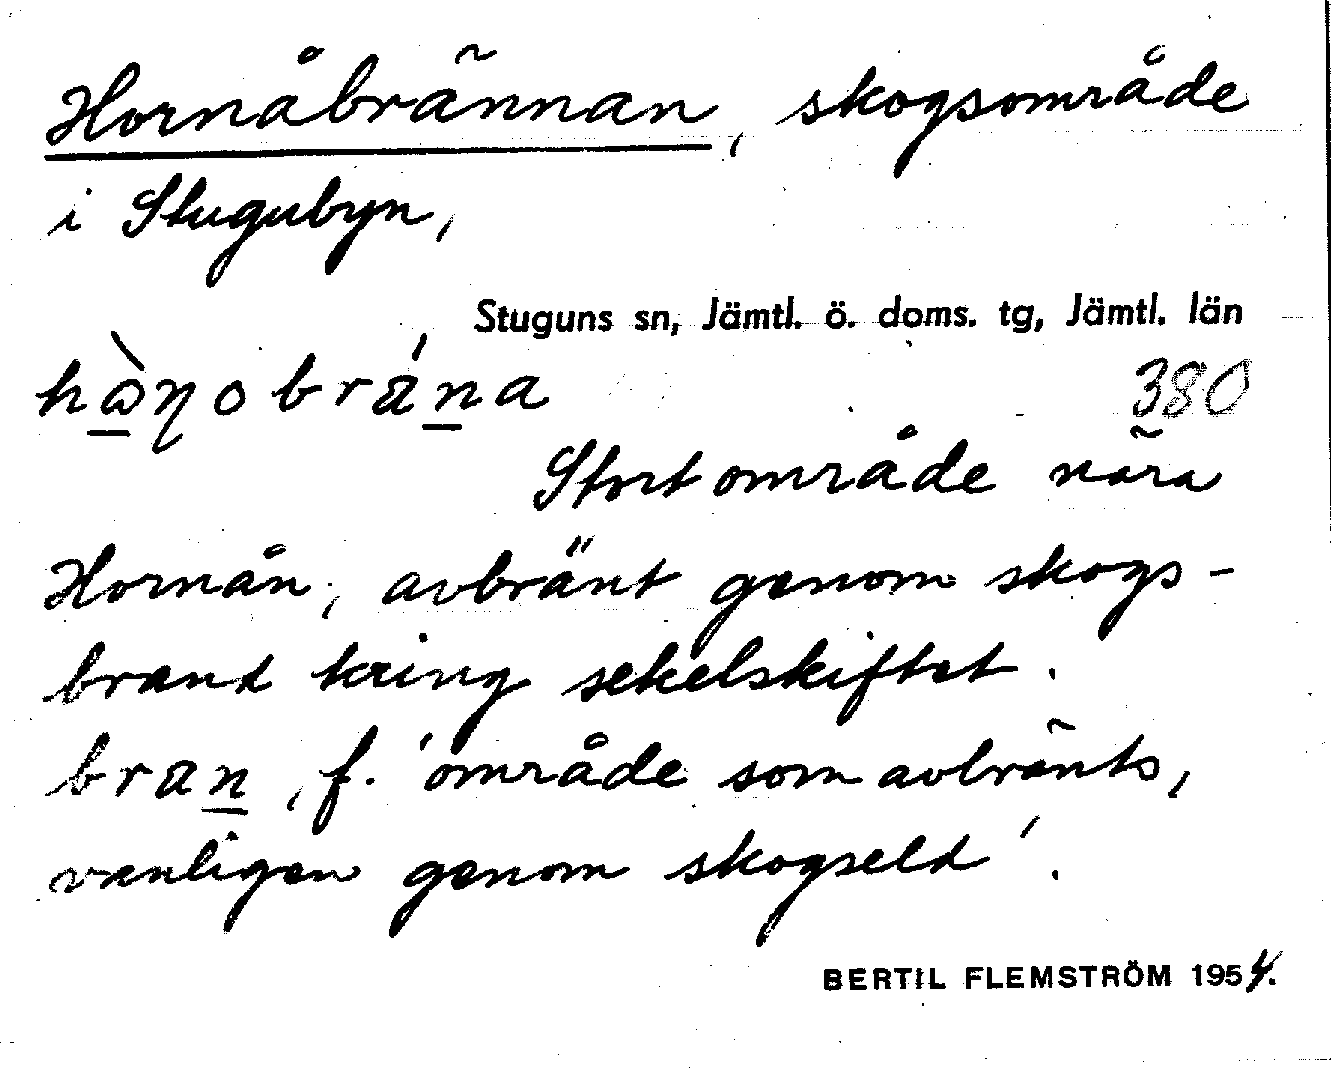 Hornåbrännan, skogsområde
i Stugubyn,
Stuguns sn, Jämtl. ö. doms. tg, Jämtl. län
380
Stort område nära
Hornån, avbränt genom skogs-
brand kring sekelskiftet.
bran, f. 'område som avbränts,
vanligen genom skogseld'.
BERTIL FLEMSTRÖM 1954.